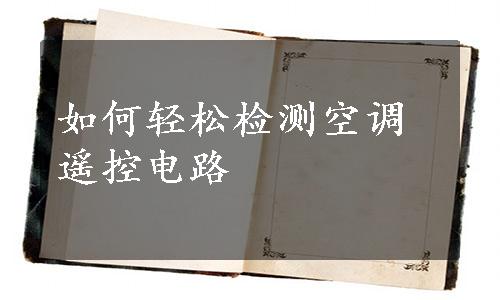 如何轻松检测空调
遥控电路